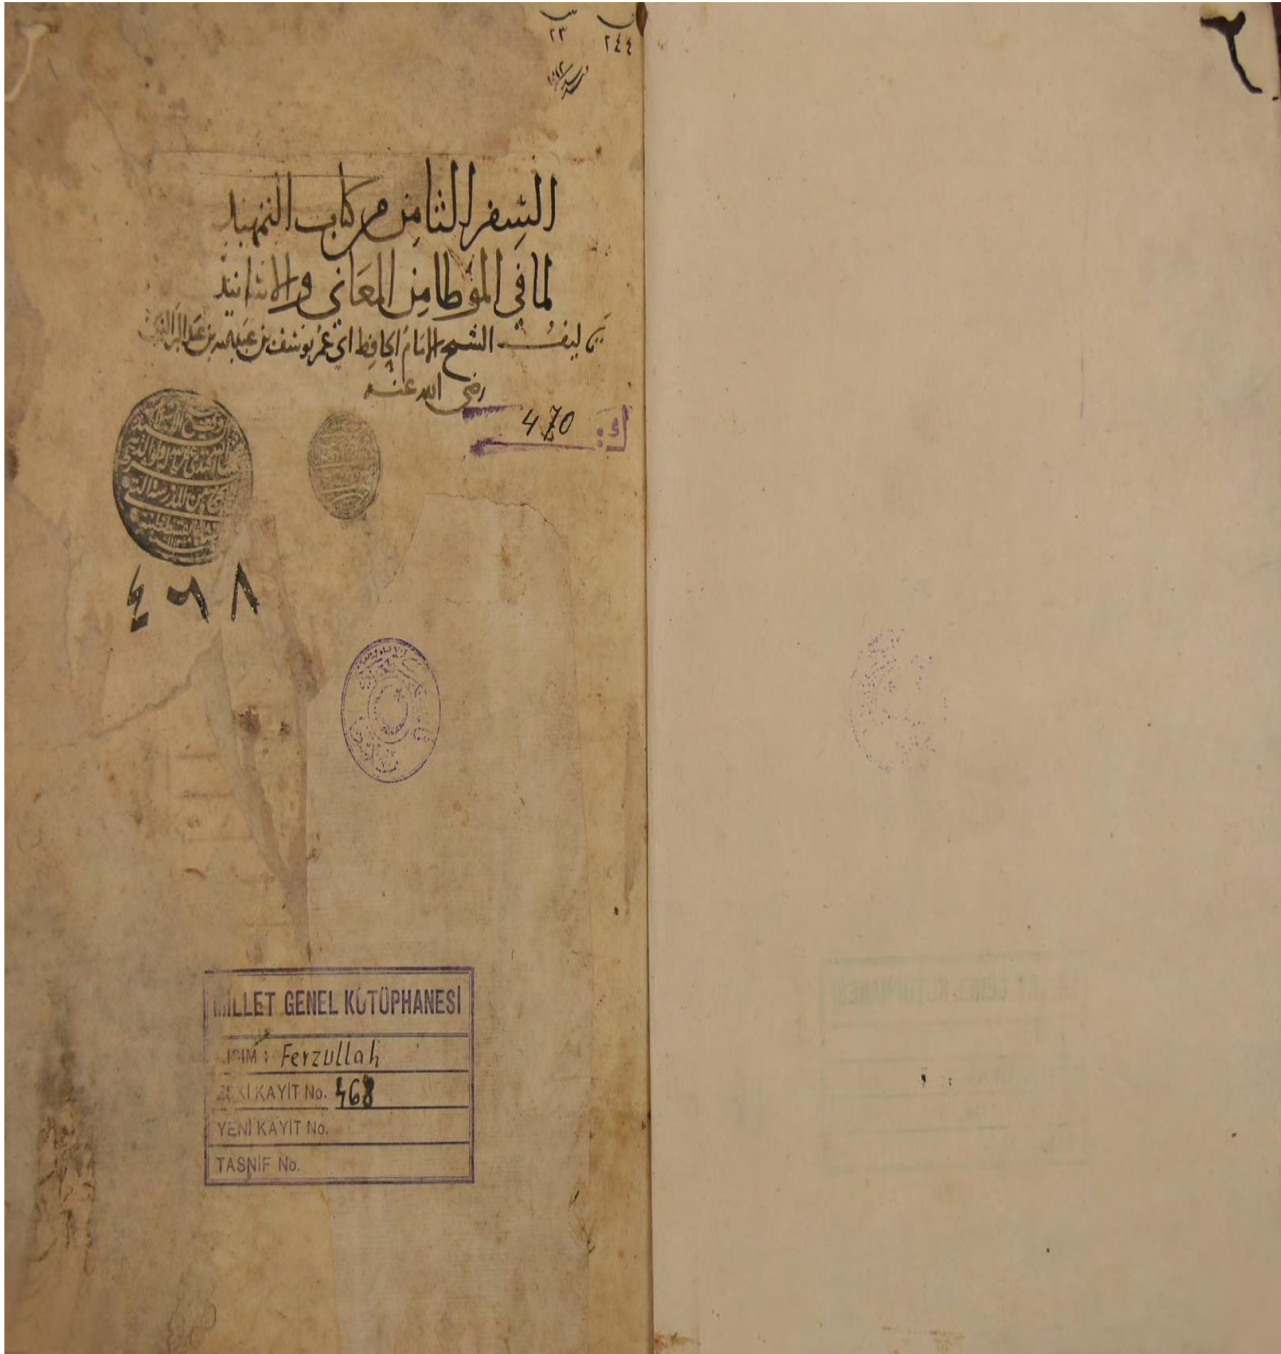 ٢
٢٣ ٢٤٤
السفر الثامن من كتاب التمهيد
لما في الموطا من المعاني والاسانيد
تاليف الشيخ الامام الحافظ ابي عمر يوسف بن عبد الله بن عبد البر النمري
رضي الله عنه
ك: 470
٤٦٨
MİLLET GENEL KÜTÜPHANESİ
KISIM : Feyzullah
ESKİ KAYIT No. 468
YENİ KAYIT No.
TASNİF No.